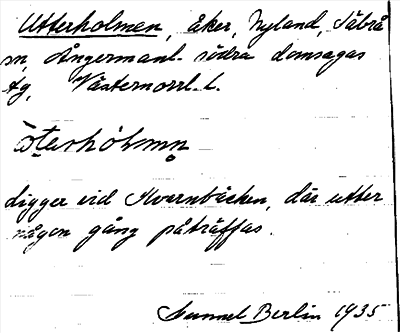 Utterholmen, åker, Nyland, Säbrå
sn, Ångermanl. södra domsagas
tg, Västernorrl. l.
ligger vid Kvarnbäcken, där utter
någon gång påträffas.
Samuel Berlin 1935